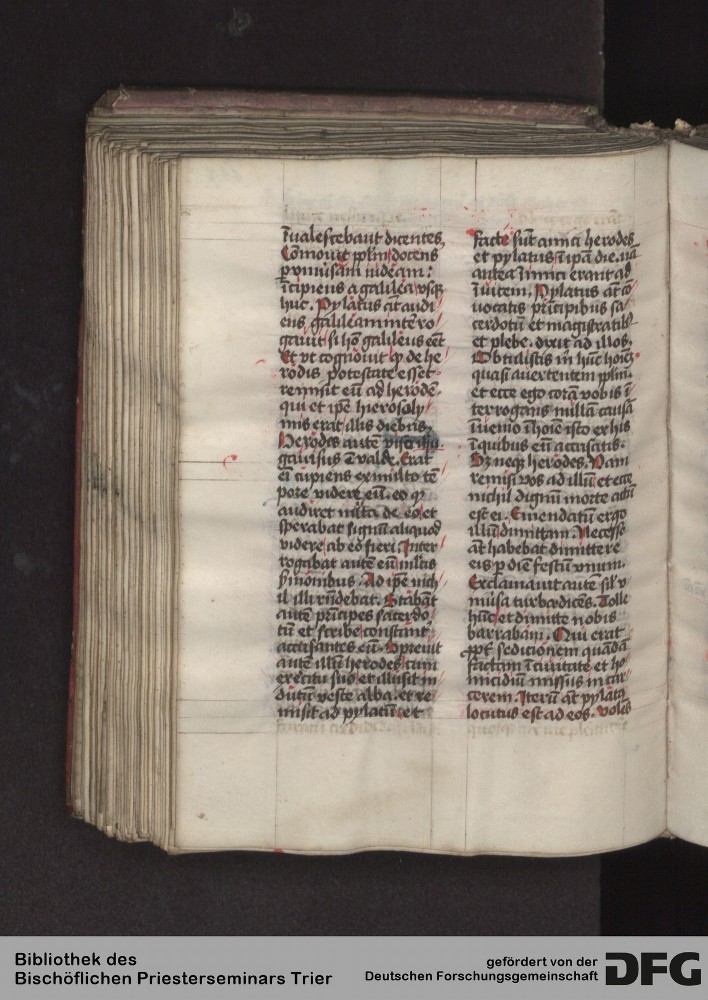 īualescebant dicentes
Cōmouit pplm̄ docens
p vniuersam iudeam:
īcipiens a galilea vsqꝫ
huc. Pylatus āt audi
ens galileam interro
gauit si hō galileus eēt
Et vt cognouit qꝫ de he
rodis potestate esset
remisit eū ad herodē
qui et ipē hierosoly
mis erat illis diebus
Herodes autē viso ihū
gauisus ē valde. Erat
eī cupiens ex multo tē
pore videre eū. eo qꝫ
audiret multa de eo et
sperabat signū aliquod
videre ab eo fieri. Inter
rogabat autē eū mltis
sermonibus. Ad ipē nich
il illi rn̄debat. Stabāt
autē prīcipes sacerdo
tū et scribe constant̄
accusantes eū. Spreuit
autē illū herodes cum
exercitu suo et illusit in
dutū veste alba. et re
misit ad pylatū. et
facti sūt amici herodes
et pylatus ī ipā die. nā
antea īimici erant ad
īuicem. Pylatus āt cō
uocatis prīcipibus sa
cerdotū et magistratibꝫ
et plebe. dixit ad illos.
Obtulistis m̄ hūc hoīeꝫ
quasi auertentem pplm̄.
et ecce ego corā vobis ī
terrogans nullā causā
īuenio ī hoīe isto ex his
ī quibus eū accusatis.
Sꝫ neqꝫ herodes. Nam
remisi vos ad illū et ecce
nichil dignū morte actū
est ei. Emendatū ergo
illū dimittam. Necesse
āt habebat dimittere
eis p diē festū vnum.
Exclamauit autē sil' v
niūsa turba dicēs. Tolle
hūc et dimitte nobis
barraban. Qui erat
ppt̄ sedicionem quādā
factam ī ciuitate et ho
micidiū missus in car
cerem. Iterū āt pylatꝰ
locutus est ad eos. volēs
Bibliothek des
Bischöflichen Priesterseminars Trier
gefördert von der
Deutschen Forschungsgemeinschaft
DFG